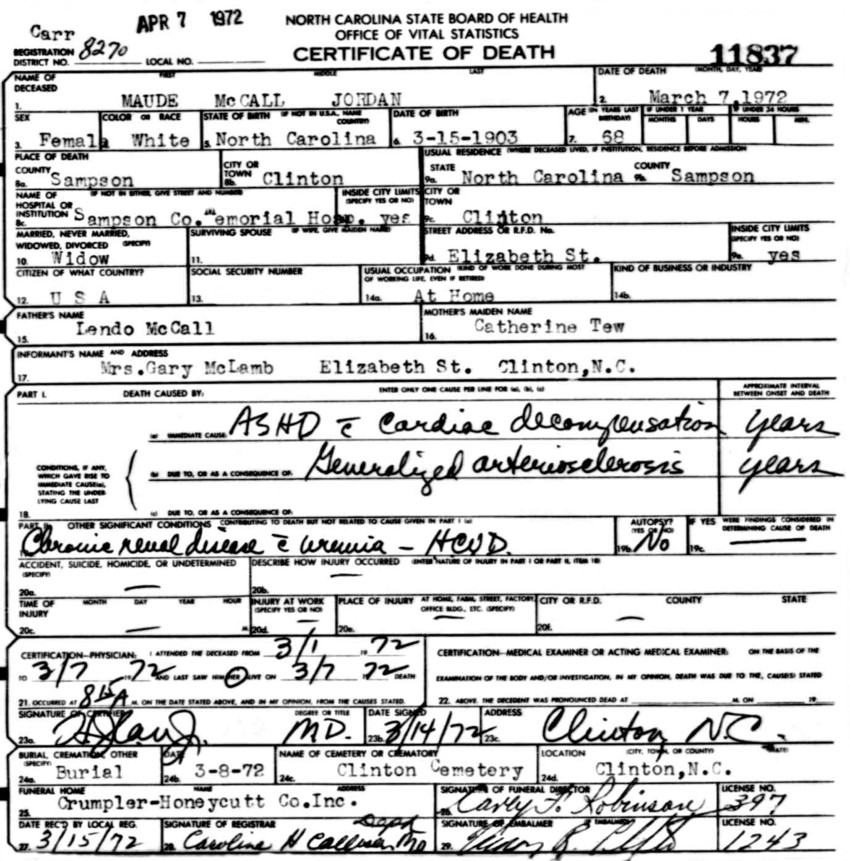 Carr APR 7 1972 NORTH CAROLINA STATE BOARD OF HEALTH
OFFICE OF VITAL STATISTICS
REGISTRATION DISTRICT NO. 8270 LOCAL NO. CERTIFICATE OF DEATH 11837
NAME OF DECEASED FIRST MIDDLE LAST DATE OF DEATH (MONTH, DAY, YEAR)
1. MAUDE McCALL JORDAN 2. March 7, 1972
SEX COLOR OR RACE STATE OF BIRTH (IF NOT IN U.S.A., NAME COUNTRY) DATE OF BIRTH AGE (IN YEARS LAST BIRTHDAY) IF UNDER 1 YEAR MONTHS DAYS IF UNDER 24 HOURS HOURS MIN.
3. Female White 5. North Carolina 6. 3-15-1903 7. 68
PLACE OF DEATH USUAL RESIDENCE (WHERE DECEASED LIVED, IF INSTITUTION, RESIDENCE BEFORE ADMISSION
COUNTY CITY OR TOWN STATE COUNTY
8a. Sampson 8b. Clinton 9a. North Carolina 9b. Sampson
NAME OF HOSPITAL OR INSTITUTION (IF NOT IN EITHER, GIVE STREET AND NUMBER) INSIDE CITY LIMITS (SPECIFY YES OR NO) CITY OR TOWN
8c. Sampson Co. emorial Hosp. yes 9c. Clinton
MARRIED, NEVER MARRIED, WIDOWED, DIVORCED (SPECIFY) SURVIVING SPOUSE (IF WIFE, GIVE MAIDEN NAME) STREET ADDRESS OR R.F.D. No. INSIDE CITY LIMITS (SPECIFY YES OR NO)
10. Widow 11. 9d. Elizabeth St. 9e. yes
CITIZEN OF WHAT COUNTRY? SOCIAL SECURITY NUMBER USUAL OCCUPATION (KIND OF WORK DONE DURING MOST OF WORKING LIFE, EVEN IF RETIRED) KIND OF BUSINESS OR INDUSTRY
12. U S A 13. 14a. At Home 14b.
FATHER'S NAME MOTHER'S MAIDEN NAME
15. Lendo McCall 16. Catherine Tew
INFORMANT'S NAME AND ADDRESS
17. Mrs. Gary McLamb Elizabeth St. Clinton, N.C.
PART I. DEATH CAUSED BY: ENTER ONLY ONE CAUSE PER LINE FOR (a), (b), (c) APPROXIMATE INTERVAL BETWEEN ONSET AND DEATH
(a) IMMEDIATE CAUSE ASHD c̄ Cardiac decompensation years
CONDITIONS, IF ANY, WHICH GAVE RISE TO IMMEDIATE CAUSE(a), STATING THE UNDERLYING CAUSE LAST
(b) DUE TO, OR AS A CONSEQUENCE OF: Generalized arteriosclerosis years
18. (c) DUE TO, OR AS A CONSEQUENCE OF:
PART II. OTHER SIGNIFICANT CONDITIONS CONTRIBUTING TO DEATH BUT NOT RELATED TO CAUSE GIVEN IN PART I (a) AUTOPSY? (YES OR NO) IF YES WERE FINDINGS CONSIDERED IN DETERMINING CAUSE OF DEATH
Chronic renal disease c̄ uremia – HCVD. 19b. No 19c. —
ACCIDENT, SUICIDE, HOMICIDE, OR UNDETERMINED (SPECIFY) DESCRIBE HOW INJURY OCCURRED (ENTER NATURE OF INJURY IN PART I OR PART II, ITEM 18)
20a. — 20b. —
TIME OF INJURY MONTH DAY YEAR HOUR INJURY AT WORK (SPECIFY YES OR NO) PLACE OF INJURY AT HOME, FARM, STREET, FACTORY, OFFICE BLDG., ETC. (SPECIFY) CITY OR R.F.D. COUNTY STATE
20c. — M. 20d. — 20e. — 20f. —
CERTIFICATION—PHYSICIAN: I ATTENDED THE DECEASED FROM 3/1 1972 CERTIFICATION—MEDICAL EXAMINER OR ACTING MEDICAL EXAMINER: ON THE BASIS OF THE
TO 3/7 1972 AND LAST SAW HIM/HER ALIVE ON 3/7 1972 DEATH EXAMINATION OF THE BODY AND/OR INVESTIGATION, IN MY OPINION, DEATH WAS DUE TO THE, CAUSE(S) STATED
21. OCCURRED AT 8:15 A M. ON THE DATE STATED ABOVE, AND IN MY OPINION, FROM THE CAUSES STATED. 22. ABOVE. THE DECEDENT WAS PRONOUNCED DEAD AT M. ON 19
SIGNATURE OF CERTIFIER DEGREE OR TITLE DATE SIGNED ADDRESS
23a. MD. 23b. 3/14/72 23c. Clinton, N.C.
BURIAL, CREMATION, OTHER (SPECIFY) DATE NAME OF CEMETERY OR CREMATORY LOCATION (CITY, TOWN, OR COUNTY) (STATE)
24a. Burial 24b. 3-8-72 24c. Clinton Cemetery 24d. Clinton, N.C.
FUNERAL HOME NAME ADDRESS SIGNATURE OF FUNERAL DIRECTOR LICENSE NO.
25. Crumpler-Honeycutt Co. Inc. Carly F. Robinson 397
DATE REC'D BY LOCAL REG. SIGNATURE OF REGISTRAR SIGNATURE OF EMBALMER LICENSE NO.
27. 3/15/72 28. Caroline H 29. 1243